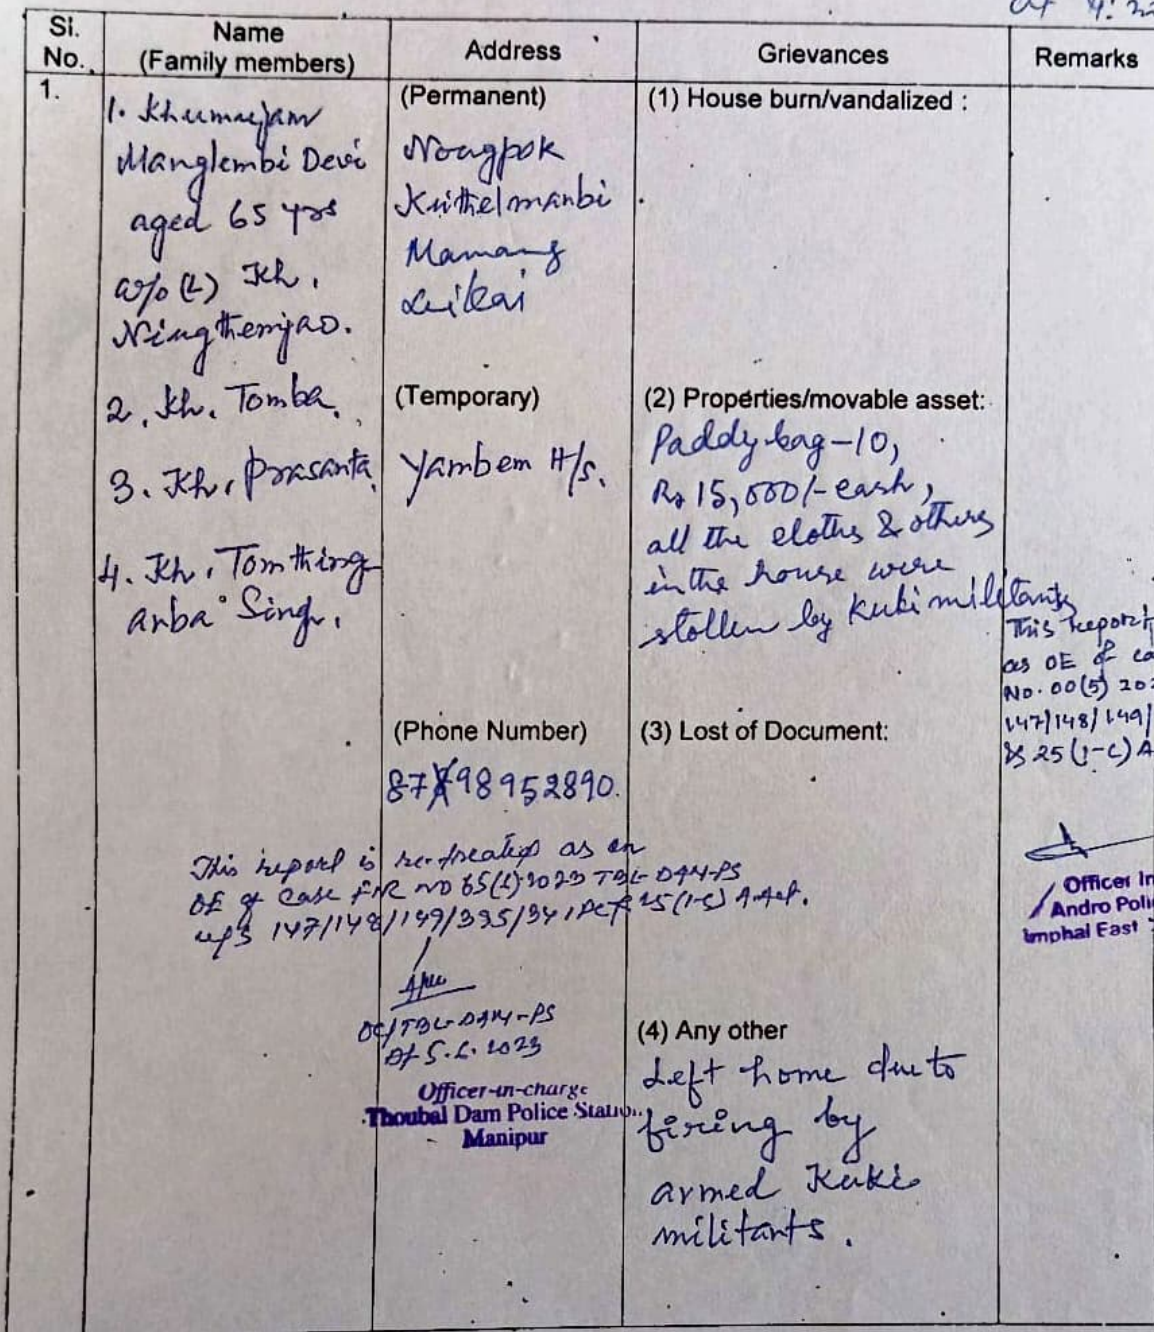 at 4:
Sl. No.
Name (Family members)
Address
Grievances
Remarks
1.
1. Khumujam
Manglembi Devi
aged 65 yrs
w/o (L) Kh.
Ningthemjao.
2. Kh. Tomba.
3. Kh. Prasanta
4. Kh. Tomthing
anba Singh.
(Permanent)
Nongpok
Kuithelmanbi
Mamang
Leikai
(Temporary)
Yambem H/s.
(Phone Number)
8798952890.
(1) House burn/vandalized :
(2) Properties/movable asset:
Paddy bag-10,
Rs 15,000/- cash,
all the cloths & others
in the house were
stollen by Kuki militants
(3) Lost of Document:
(4) Any other
Left home due to
firing by
armed Kuki
militants.
This report
as OE of
No. 00(5) 202
147/148/149/
& 25 (1-C) A
Officer In
Andro Poli
Imphal East
This report is re-treated as an
OE of Case FIR NO 65(2) 2023 TBL-DAM-PS
u/s 147/148/149/395/34 IPC & 25 (1-C) A.Act.
OC/TBL-DAM-PS
Dt 5.6.2023
Officer-in-charge
Thoubal Dam Police Station
Manipur